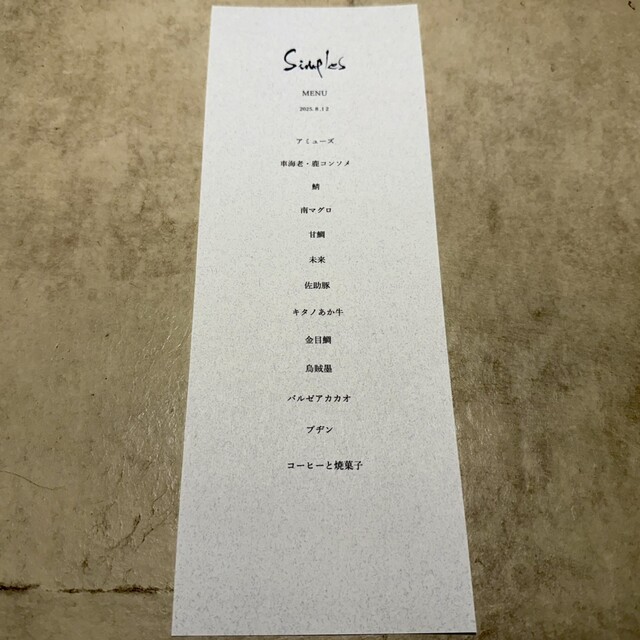 Simples
MENU
2025.8.12
アミューズ
車海老・鹿コンソメ
鯖
南マグロ
甘鯛
未来
佐助豚
キタノあか牛
金目鯛
烏賊墨
バルゼアカカオ
プヂン
コーヒーと焼菓子